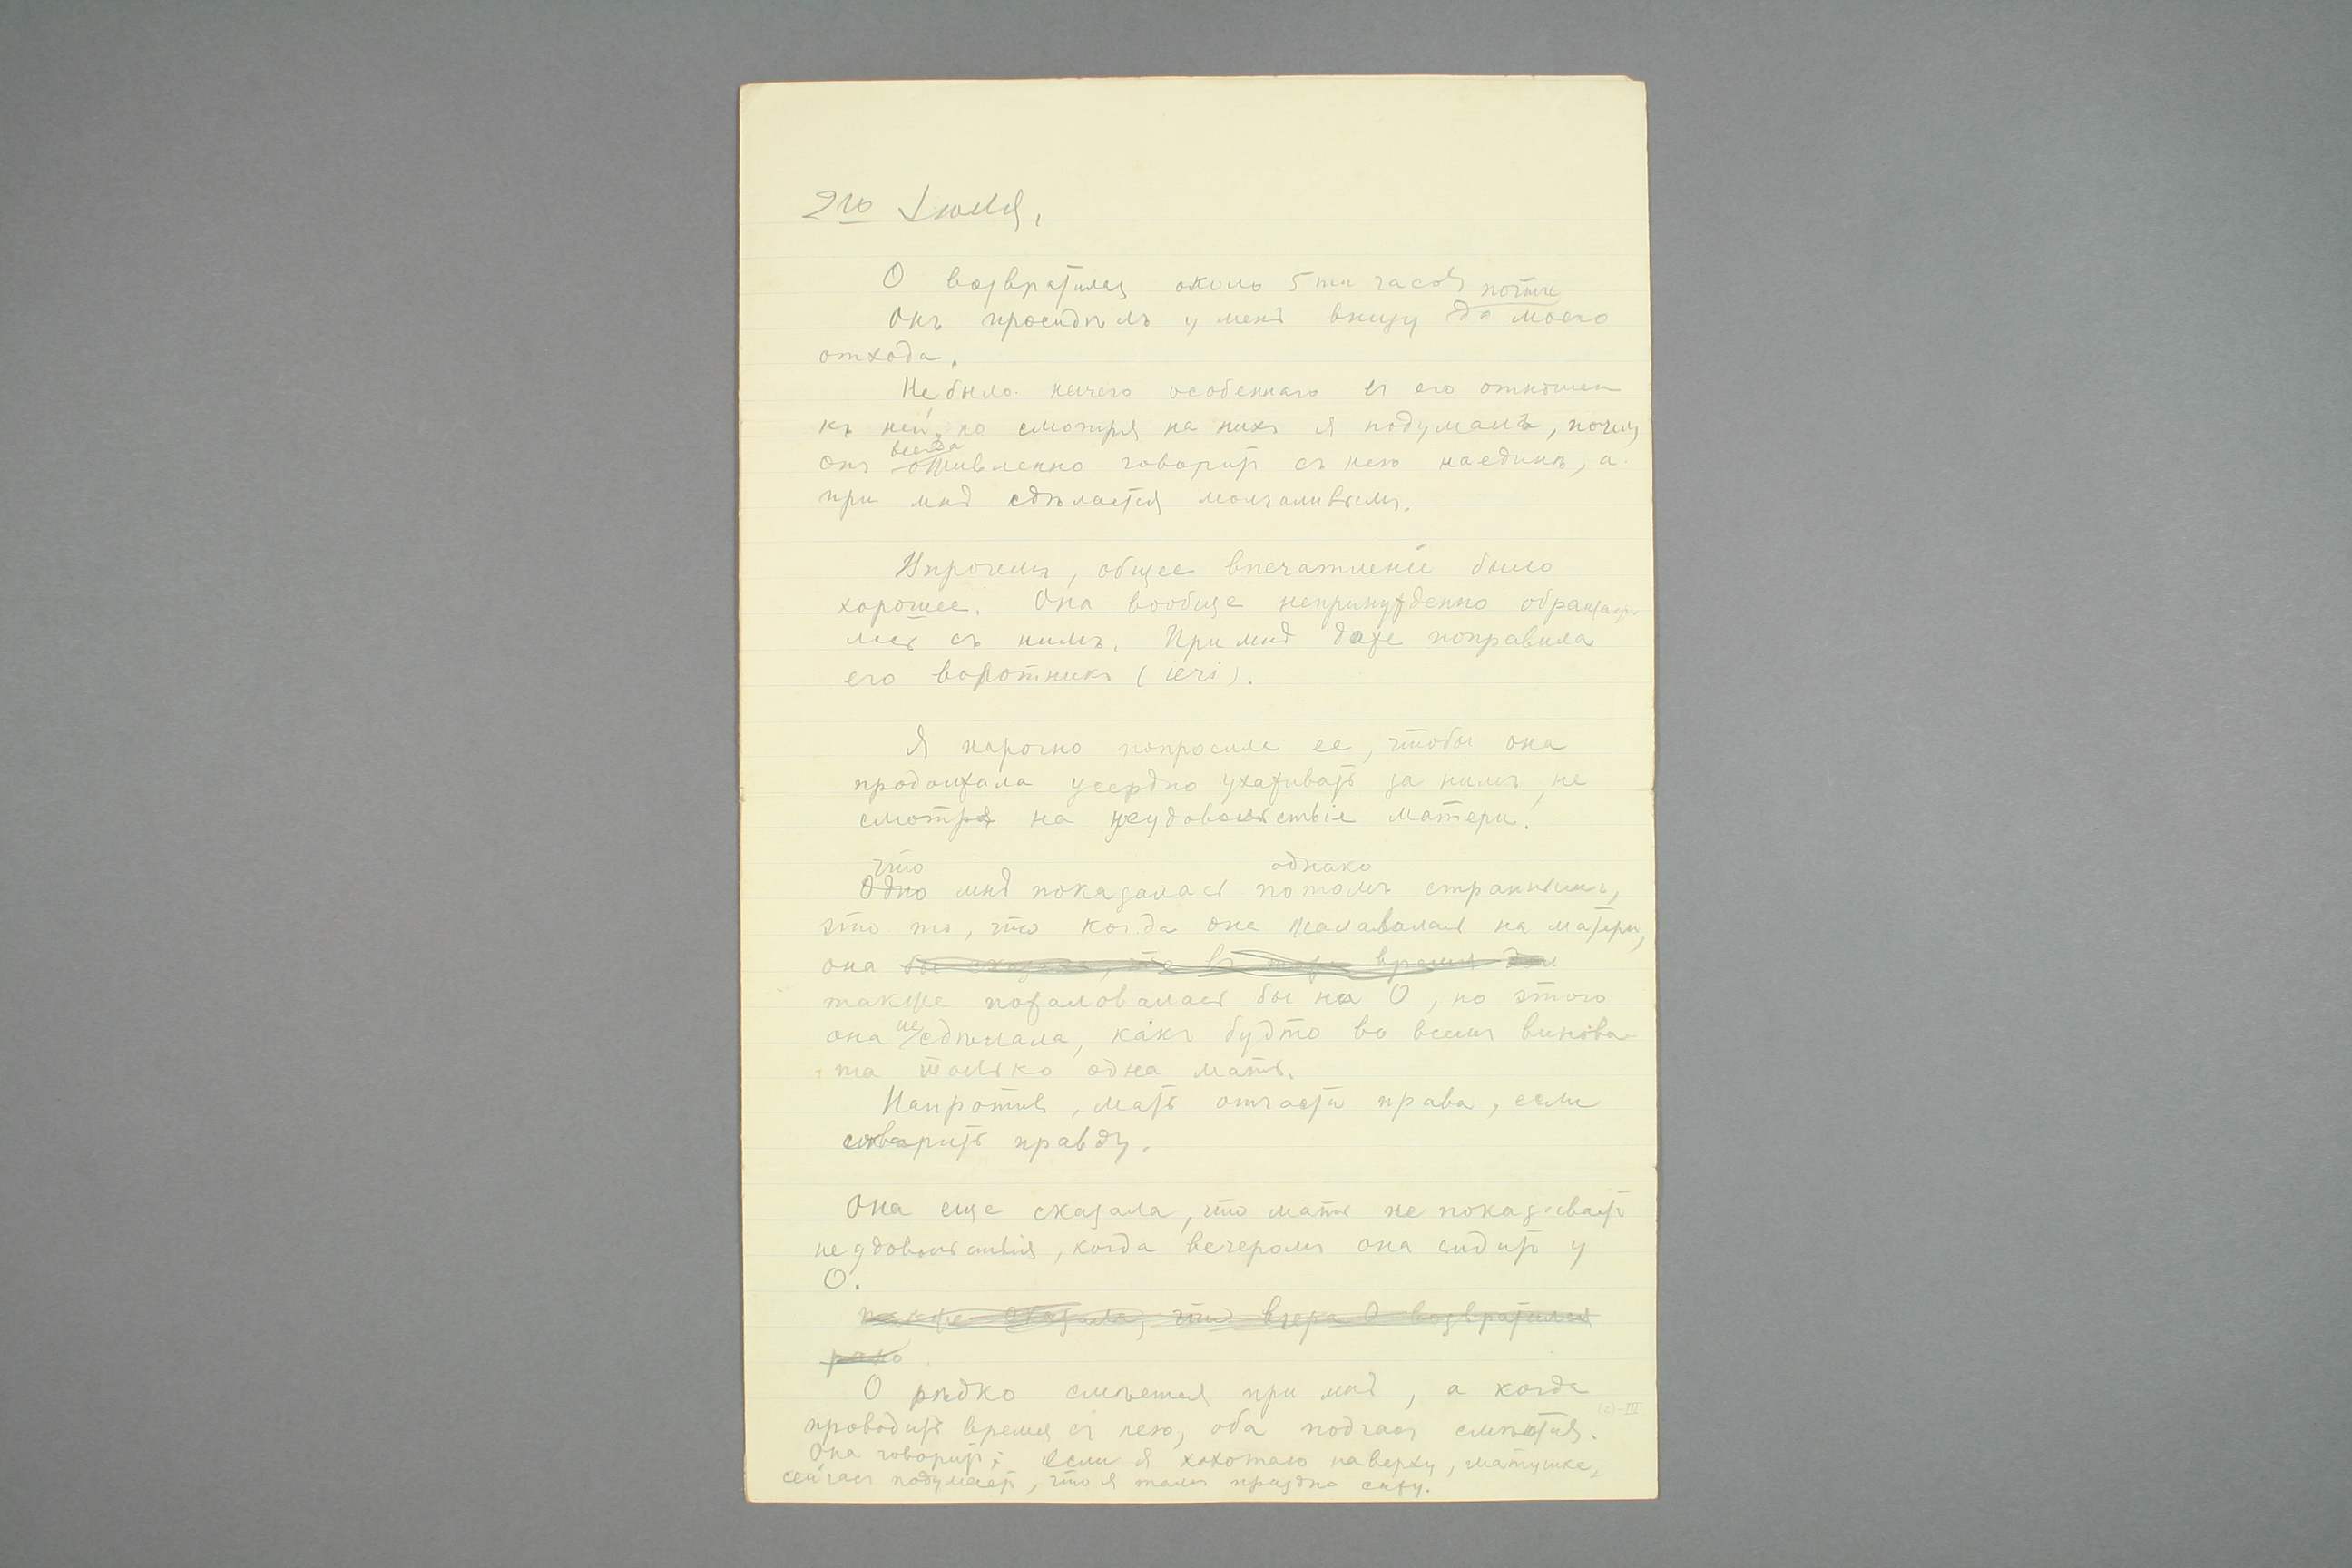 2го Іюля,
О возвратилась около 5ти часовъ
почти
Онъ просидѣлъ у меня внизу до моего
отхода.
Не было ничего особеннаго въ его отношен
къ ней, но смотря на нихъ я подумалъ, почему
всегда
онъ оживленно говоритъ съ нею наединѣ, а
при мнѣ сдѣлается молчаливымъ.
Впрочемъ, общее впечатленіе было
хорошее. Она вообще непринужденно обращает
лась съ нимъ. При мнѣ даже поправила
его воротникъ (іечі).
Я нарочно попросила ее, чтобы она
продолжала усердно ухаживать за нимъ, не
смотря на неудовольствіе матери.
что однако
Одно мнѣ показалась потомъ страннымъ,
это то, что когда она жаловалась на матерь,
она бы сказала, что въ время
также пожаловалась бы на О, но этого
она не сдѣлала, какъ будто во всемъ винова
та только одна мать.
Напротивъ, мать отчасти права, если
говорить правду.
Она еще сказала, что мать не показываетъ
неудовольствія, когда вечеромъ она сидитъ у
О.
также сказала, что вчера О возвратился
рано
О рѣдко смѣется при мнѣ, а когда
проводитъ время съ нею, оба подчасъ смѣются.
(2)-III
Она говоритъ: если я хохотаю наверху, матушка,
сейчасъ подумаетъ, что я тамъ праздно сижу.